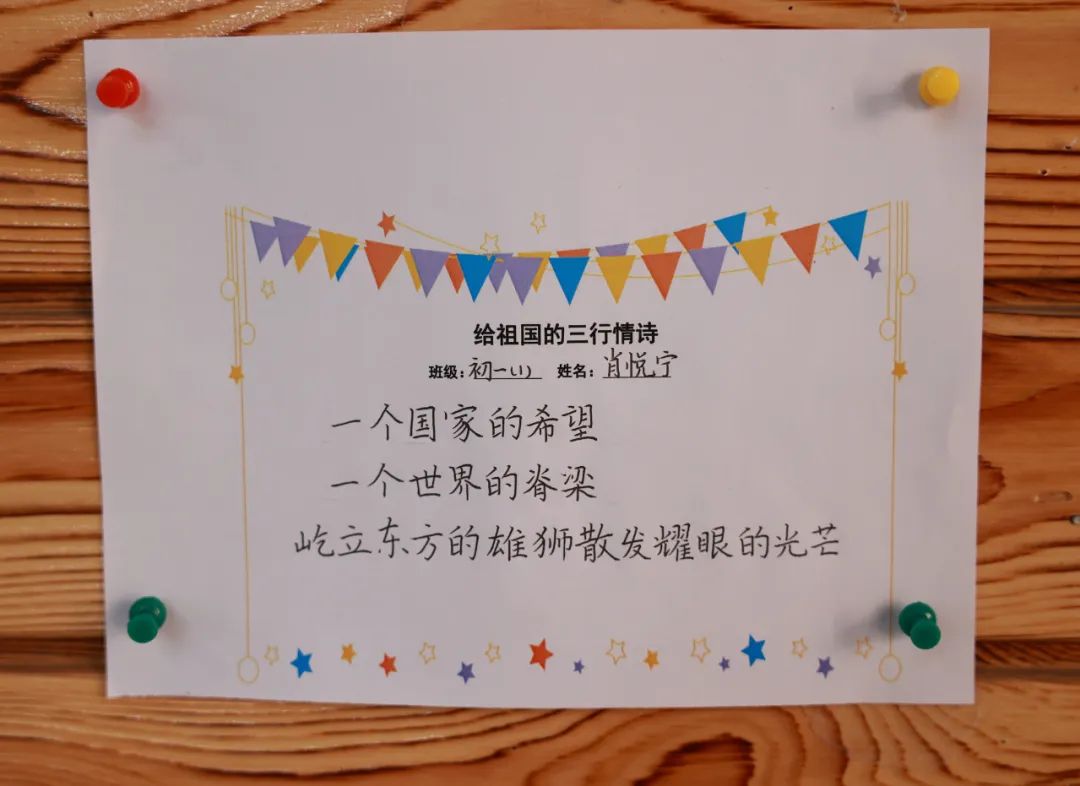 给祖国的三行情诗
班级:初一(1) 姓名:肖悦宁
一个国家的希望
一个世界的脊梁
屹立东方的雄狮散发耀眼的光芒